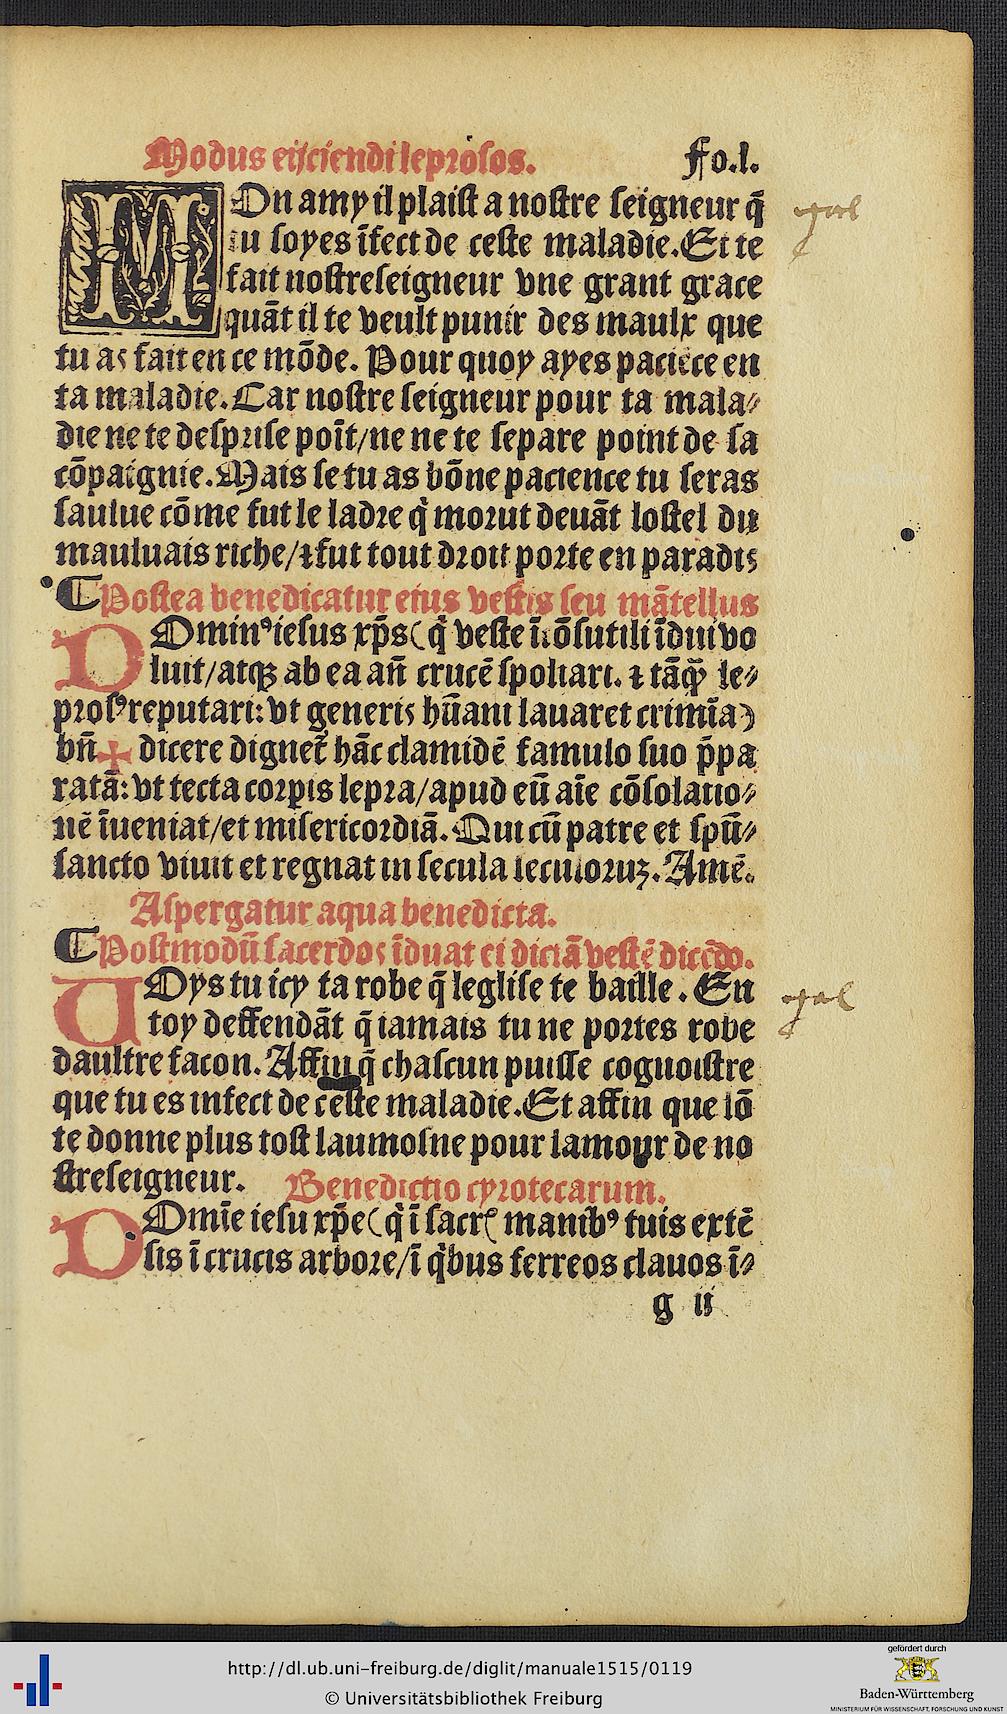 Modus eijciendi leprosos. Fo.l.
MOn amy il plaist a nostre seigneur q̄
tu soyes ĩfect de ceste maladie. Et te
fait nostreseigneur vne grant grace
quãt il te veult punir des maulx que
tu as fait en ce mõde. Pour quoy ayes paciẽce en
ta maladie. Car nostre seigneur pour ta mala⸗
die ne te desprise poĩt/ne ne te separe point de sa
cõpaignie. Mais se tu as bõne pacience tu seras
saulue cõme fut le ladre q̇ morut deuãt lostel du
mauluais riche/⁊ fut tout droit porte en paradis
¶ Postea benedicatur eius vestis seu mãtellus
DOminꝰ iesus xp̄s (q̇ veste ĩcõsutili ĩdui vo
luit/atqꝫ ab ea añ crucẽ spoliari. ⁊ tãq̄ȝ le⸗
prosꝰ reputari: vt generis hũani lauaret crimĩa)
bñ ✠ dicere dignet̃ hãc clamidẽ famulo suo p̄pa
ratã: vt tecta corpis lepra/apud eũ aĩe cõsolatio⸗
nẽ ĩueniat/et misericordiã. Qui cũ patre et spũ⸗
sancto viuit et regnat in secula seculoruꝫ. Amẽ.
Aspergatur aqua benedicta.
¶ Postmodũ sacerdos ĩduat ei dictã vestẽ dicẽdo.
UOys tu icy ta robe q̄ leglise te baille. En
toy deffendãt q̄ iamais tu ne portes robe
daultre facon. Affin q̄ chascun puisse cognoistre
que tu es infect de ceste maladie. Et affin que lõ
te donne plus tost laumosne pour lamour de no
streseigneur. Benedictio cyrotecarum.
DOmĩe iesu xp̄e (q̇ ĩ sacrꝭ manibꝰ tuis extẽ
sis ĩ crucis arbore/ĩ q̇bus ferreos clauos ĩ⸗
g ii
gal
gal
http://dl.ub.uni-freiburg.de/diglit/manuale1515/0119
© Universitätsbibliothek Freiburg
gefördert durch
Baden-Württemberg
MINISTERIUM FÜR WISSENSCHAFT, FORSCHUNG UND KUNST